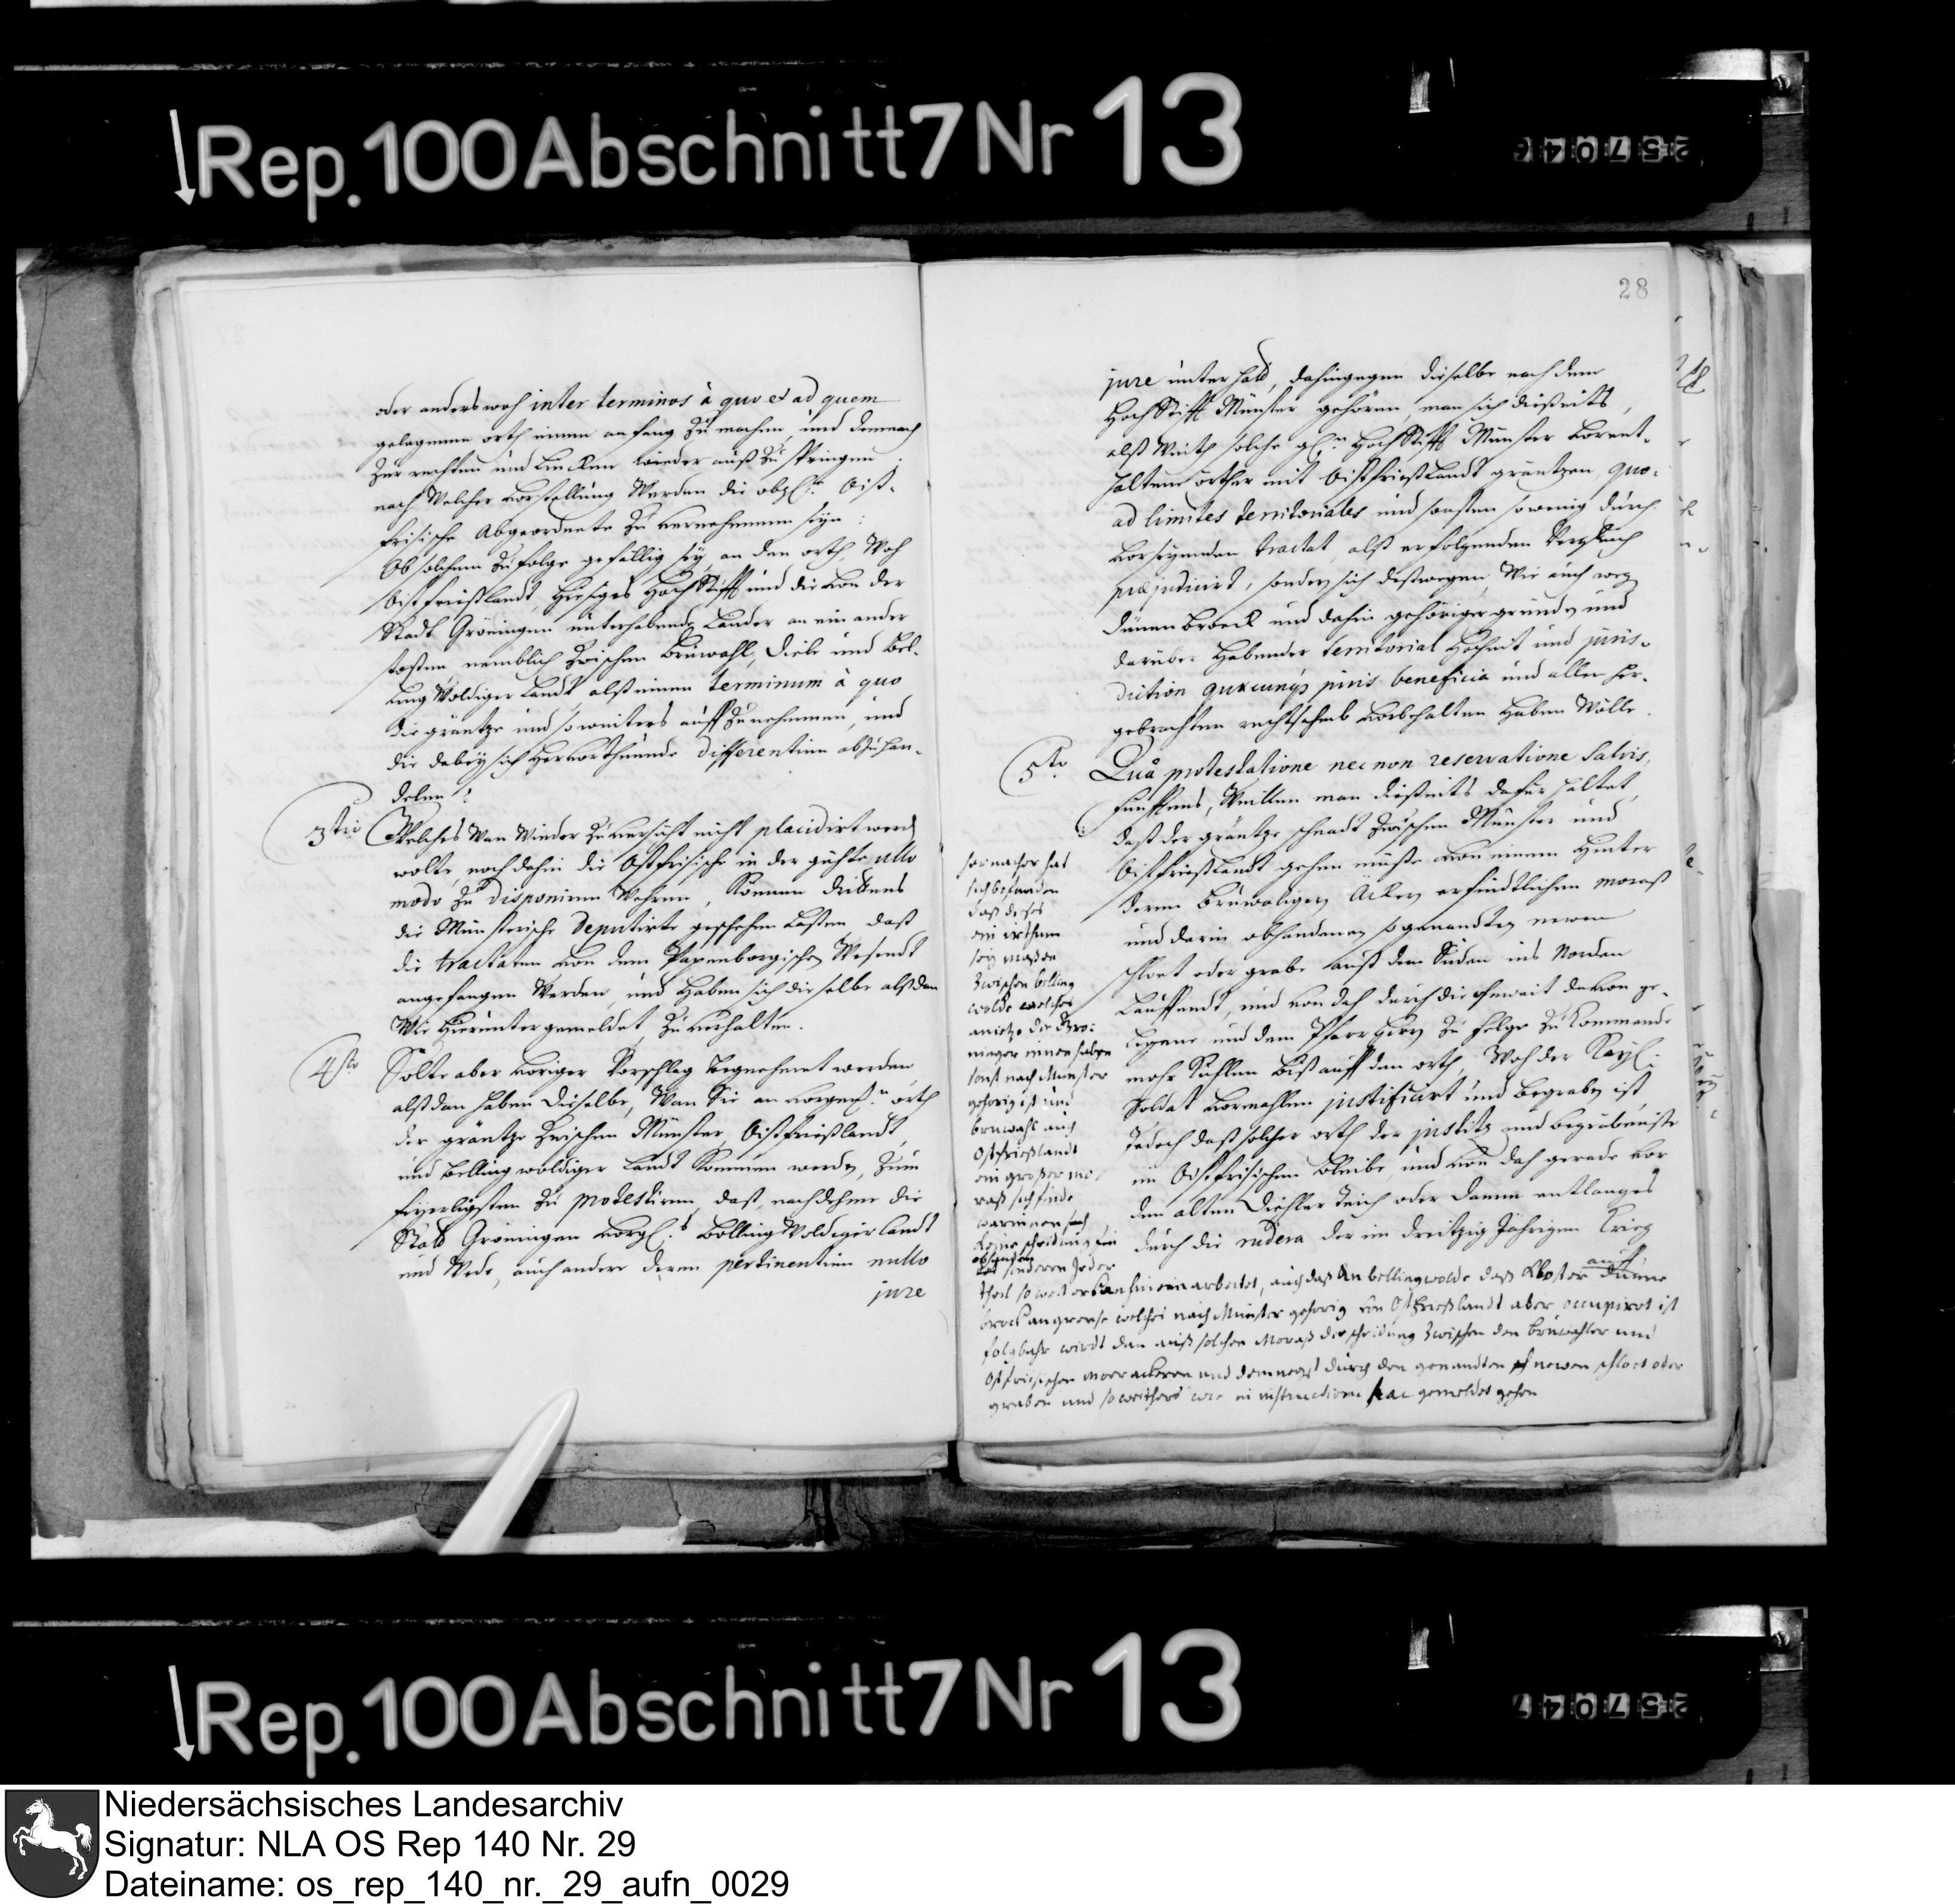 Rep. 100 Abschnitt 7 Nr 13
28
oder anderswoh inter terminos à quo et ad quem
gelegenen orth einen anfang zu machen, und demnach
zur rechten und Lincken wieder auß zu springen
nach Welcher vorstellung Werden die Oist-
frisische Abgeordnete zu vernehmen seyn:
Ob solchem zufolge gefällig sey, an den orth Woh
Oistfrießlandt, Hiesiges HochStifft und die von der
Stadt Gröningen unterhabende Länder an ein ander
stoßen nemblich zwischen Brüwahl, Diele und Bel-
ling Woldiger Landt alß einen terminum à quo
die gräntze und so weiters auff zu nehmen, und
die dabey sich hervorthuende differentien abzuhan-
delen?
3tio Welches Wan Wieder zuversicht nicht placidirt werd
wolte, noch dahin die Ostfrisische in der güthe ullo
modo zu disponiren Wehren, Können
die Münsterische Deputirte geschehen Laßen, daß
die tractaten von dem Papenborgischen
angefangen Werden, und haben sich dieselbe alßdan
Wie hierunter gemeldet, zu verhalten.
4to Solte aber voriger Vorschlag Angenehmet werden,
alßdan haben Dieselbe, Wan Sie an orth
der gräntze zwischen Münster, Oistfrießlandt,
und Bellingwoldiger Landt Kommen werden, zum
feyerligsten zu protestiren, daß, nachdehme die
Stadt Gröningen Belling Woldiger Landt
und Wede, auch andere deren pertinentien nullo
jure
jure unterhält, dahingegen dieselbe nach dem
HochStifft Münster gehören, man sich dießeits,
alß Weith solche HochStifft Münster vorent-
haltene örther mit Oistfrießlandt gräntzen, quo-
ad limites territoriales und sonsten so wenig durch
vorseyenden tractat, alß erfolgenden Vergleich
præjudicirt, sondern sich deßwegen, Wie auch weg
Dünen Broeck und dahin gehöriger gründen und
darüber Habender territorial Hocheit und juris-
diction quæcunque juris beneficia und allen her-
gebrachten vorbehalten haben Wolle.
5to Quâ protestatione nec non reservatione salvis,
fünfftens, Weillen man dießeits dafür haltet,
daß der gräntze schnadt zwischen Münster und
Oistfrießlandt gehen müße von einem hinter
deren Brüwaligen Äcker erfindtlichen moraß
und darin obhandenen sogenandten newen
schloet oder grabe auß dem Süden ins Norden
Lauffendt, und von dah durch die ohnweit davon ge-
legene und dem Pfarrherrn zu folge zu Kommende
mohr Kuhlen Biß auff den orth, Woh der Kayßl:
Soldat vormahlen justificirt und begraben ist,
Jedoch daß solcher orth der justitz und begräbnüsse
im Oistfrisischen bleibe, und von dah gerade vor
den alten Diehler Teich oder Damm entlanges
durch die rudera der im dreitzig Jährigen Krieg
auff
hernacher hat
sich befunden
daß dieses
ein irthum
sey maßen
zwischen belling
wolde welches
anietzo die Gro:
ninger innen haben
sonst nach Munster
gehorig ist und
bruwahl auch
Ostfrießlandt
ein großer mo
raß sich finde
warinnen sich
keine scheidung
sonderen jeder
theil so weit er kan hinein arbeitet, auch daß an bellingwolde daß Kloster Dunne
broek angrense welches nach Munster gehorig von Ostfrießlandt aber occupirt ist
folgbahr wirdt dan auß solchen Moraß die scheidung zwischen den bruwahler und
Ostfriesischen moer ackeren und demnegst durch den genandten newen schloet oder
graben und so weithers wie in instructione hac gemeldet gehen
Rep. 100 Abschnitt 7 Nr 13
Niedersächsisches Landesarchiv
Signatur: NLA OS Rep 140 Nr. 29
Dateiname: os_rep_140_nr._29_aufn_0029